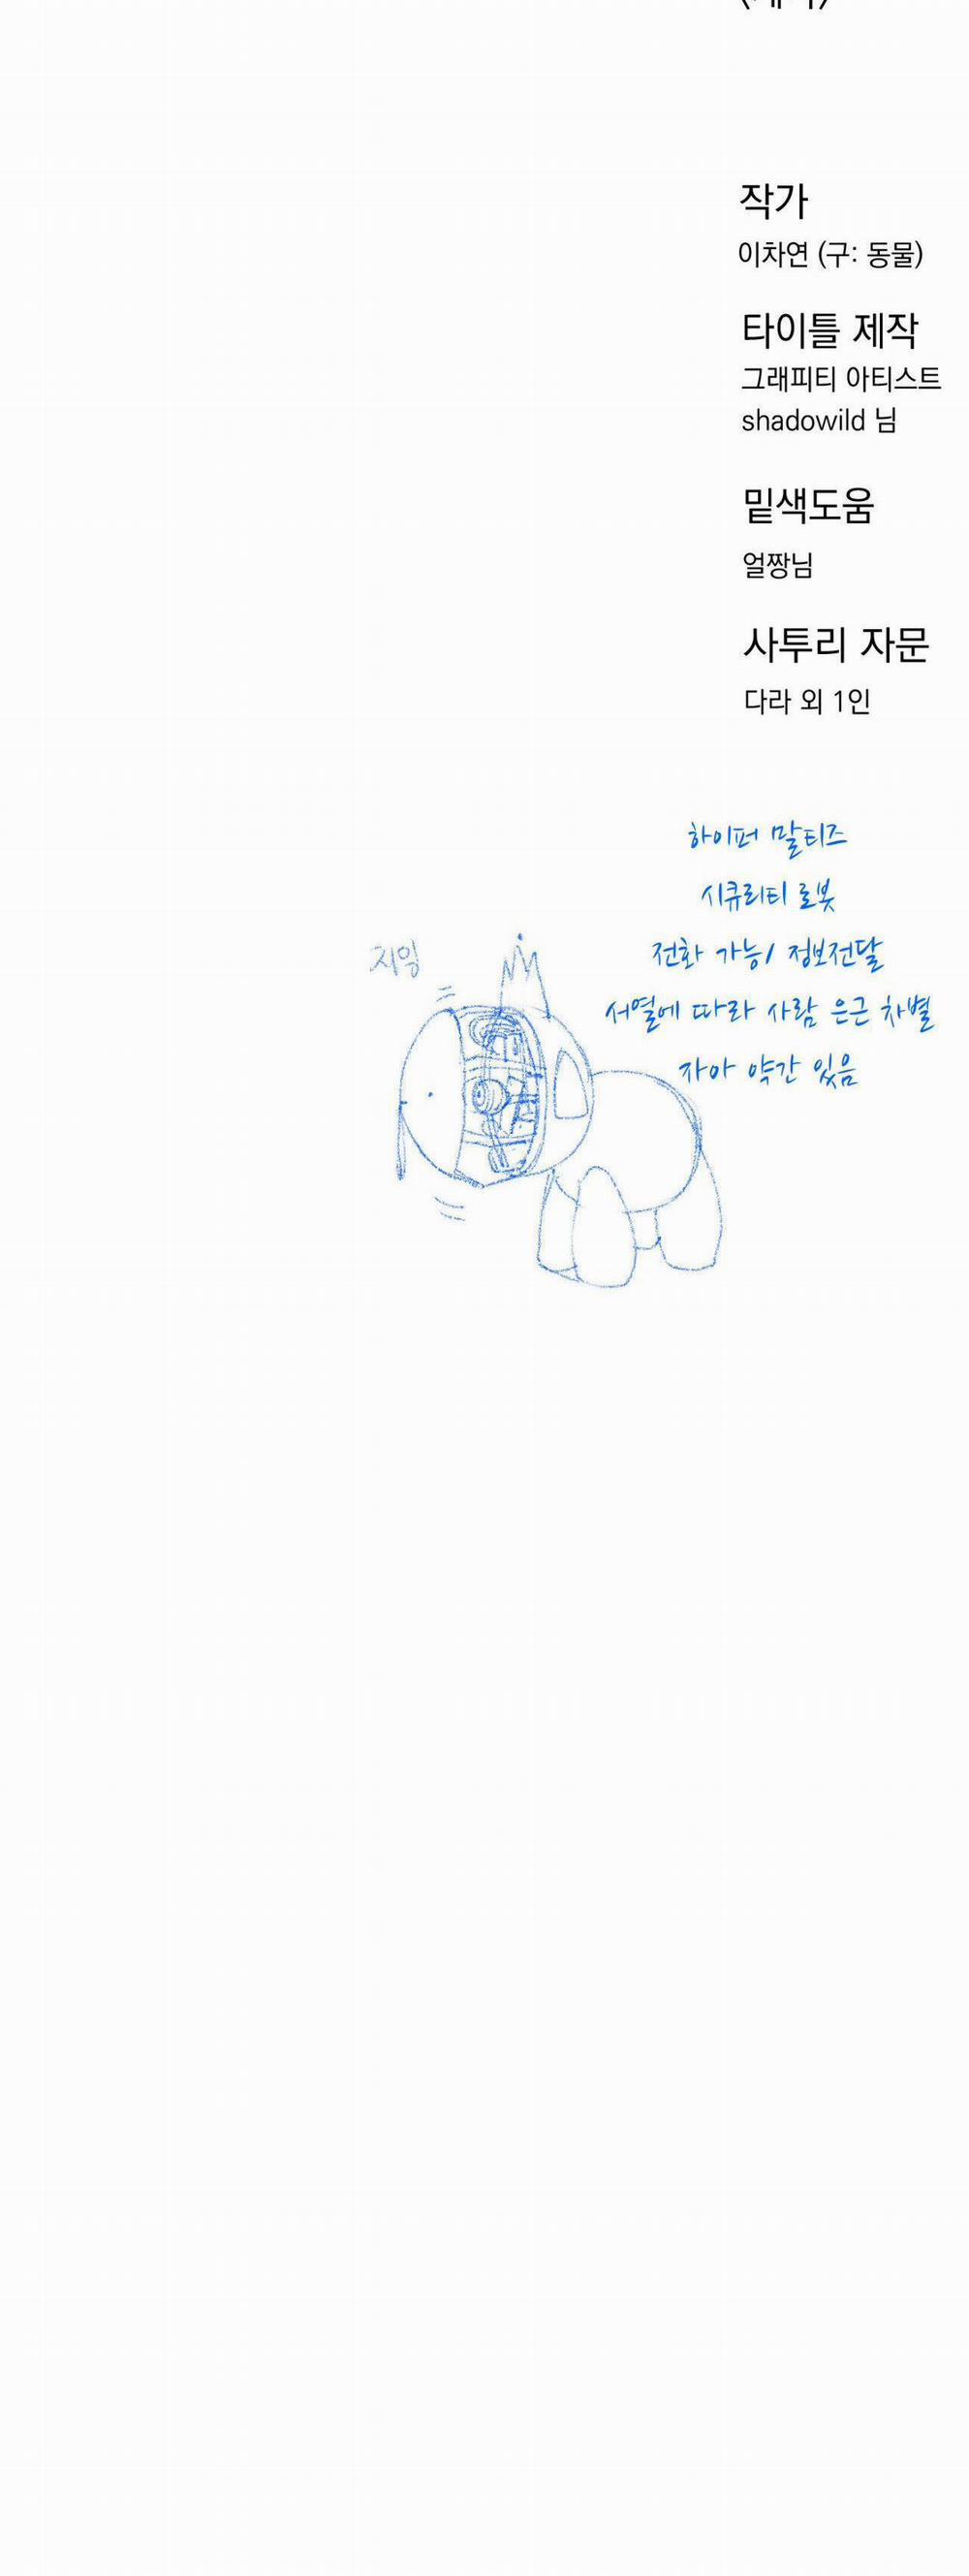 작가
이차연 (구: 동물)
타이틀 제작
그래피티 아티스트
shadowild 님
밑색도움
얼짱님
사투리 자문
다라 외 1인
하이퍼 말티즈
시큐리티 로봇
전화 가능/ 정보전달
서열에 따라 사람 은근 차별
자아 약간 있음
지잉